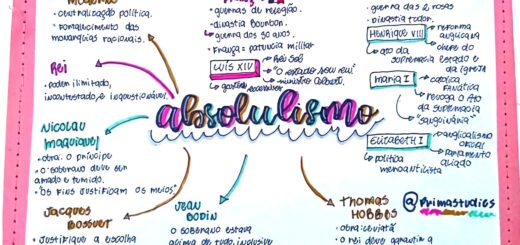 • centralização política.
• fortalecimento das
monarquias nacionais.
Rei
• poder ilimitado,
incontestado, e inquestionável.
Nicolau
Maquiavel
• obra: o príncipe
• o soberano deve ser
amado e temido.
• "Os fins justificam os meios"
Jacques
Bossuet
• justifique a escolha
• guerras de religião.
• dinastia bourbon.
guerra dos 30 anos.
França = potência militar
Luís XIV
Rei Sol
"O estado sou eu"
ministro Colbert.
absolutismo
Jean
Bodin
O soberano estava
acima de tudo, inclusive
• guerra das 2 rosas
• dinastia tudor.
Henrique VIII
reforma
anglicana
ato da
supremacia
chefe do
estado e da
igreja
maria I
católica
fanática
revoga o Ato
da supremacia
"sanguinária"
Elizabeth I
anglicalismo
oficial
parlamento
aliado
política
mercantilista
Thomas
Hobbes
• obra: leviatã
• o rei deve garantir
@primastudies